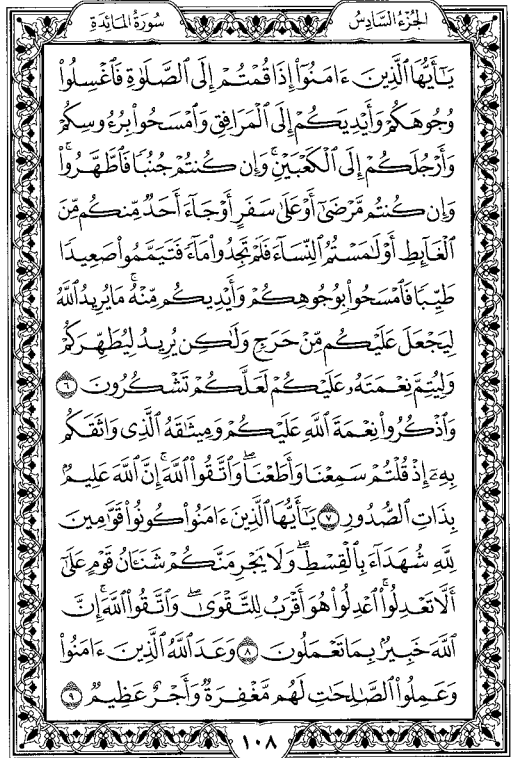 الجزء السادس
سورة المائدة
يَٰٓأَيُّهَا ٱلَّذِينَ ءَامَنُوٓا۟ إِذَا قُمْتُمْ إِلَى ٱلصَّلَوٰةِ فَٱغْسِلُوا۟
وُجُوهَكُمْ وَأَيْدِيَكُمْ إِلَى ٱلْمَرَافِقِ وَٱمْسَحُوا۟ بِرُءُوسِكُمْ
وَأَرْجُلَكُمْ إِلَى ٱلْكَعْبَيْنِ ۚ وَإِن كُنتُمْ جُنُبًا فَٱطَّهَّرُوا۟ ۚ
وَإِن كُنتُم مَّرْضَىٰٓ أَوْ عَلَىٰ سَفَرٍ أَوْ جَآءَ أَحَدٌ مِّنكُم مِّنَ
ٱلْغَآئِطِ أَوْ لَٰمَسْتُمُ ٱلنِّسَآءَ فَلَمْ تَجِدُوا۟ مَآءً فَتَيَمَّمُوا۟ صَعِيدًا
طَيِّبًا فَٱمْسَحُوا۟ بِوُجُوهِكُمْ وَأَيْدِيكُم مِّنْهُ ۚ مَا يُرِيدُ ٱللَّهُ
لِيَجْعَلَ عَلَيْكُم مِّنْ حَرَجٍ وَلَٰكِن يُرِيدُ لِيُطَهِّرَكُمْ
وَلِيُتِمَّ نِعْمَتَهُۥ عَلَيْكُمْ لَعَلَّكُمْ تَشْكُرُونَ ٦
وَٱذْكُرُوا۟ نِعْمَةَ ٱللَّهِ عَلَيْكُمْ وَمِيثَٰقَهُ ٱلَّذِى وَاثَقَكُم
بِهِۦٓ إِذْ قُلْتُمْ سَمِعْنَا وَأَطَعْنَا ۖ وَٱتَّقُوا۟ ٱللَّهَ ۚ إِنَّ ٱللَّهَ عَلِيمٌۢ
بِذَاتِ ٱلصُّدُورِ ٧ يَٰٓأَيُّهَا ٱلَّذِينَ ءَامَنُوا۟ كُونُوا۟ قَوَّٰمِينَ
لِلَّهِ شُهَدَآءَ بِٱلْقِسْطِ ۖ وَلَا يَجْرِمَنَّكُمْ شَنَـَٔانُ قَوْمٍ عَلَىٰٓ
أَلَّا تَعْدِلُوا۟ ۚ ٱعْدِلُوا۟ هُوَ أَقْرَبُ لِلتَّقْوَىٰ ۖ وَٱتَّقُوا۟ ٱللَّهَ ۚ إِنَّ
ٱللَّهَ خَبِيرٌۢ بِمَا تَعْمَلُونَ ٨ وَعَدَ ٱللَّهُ ٱلَّذِينَ ءَامَنُوا۟
وَعَمِلُوا۟ ٱلصَّٰلِحَٰتِ لَهُم مَّغْفِرَةٌ وَأَجْرٌ عَظِيمٌ ٩
١٠٨